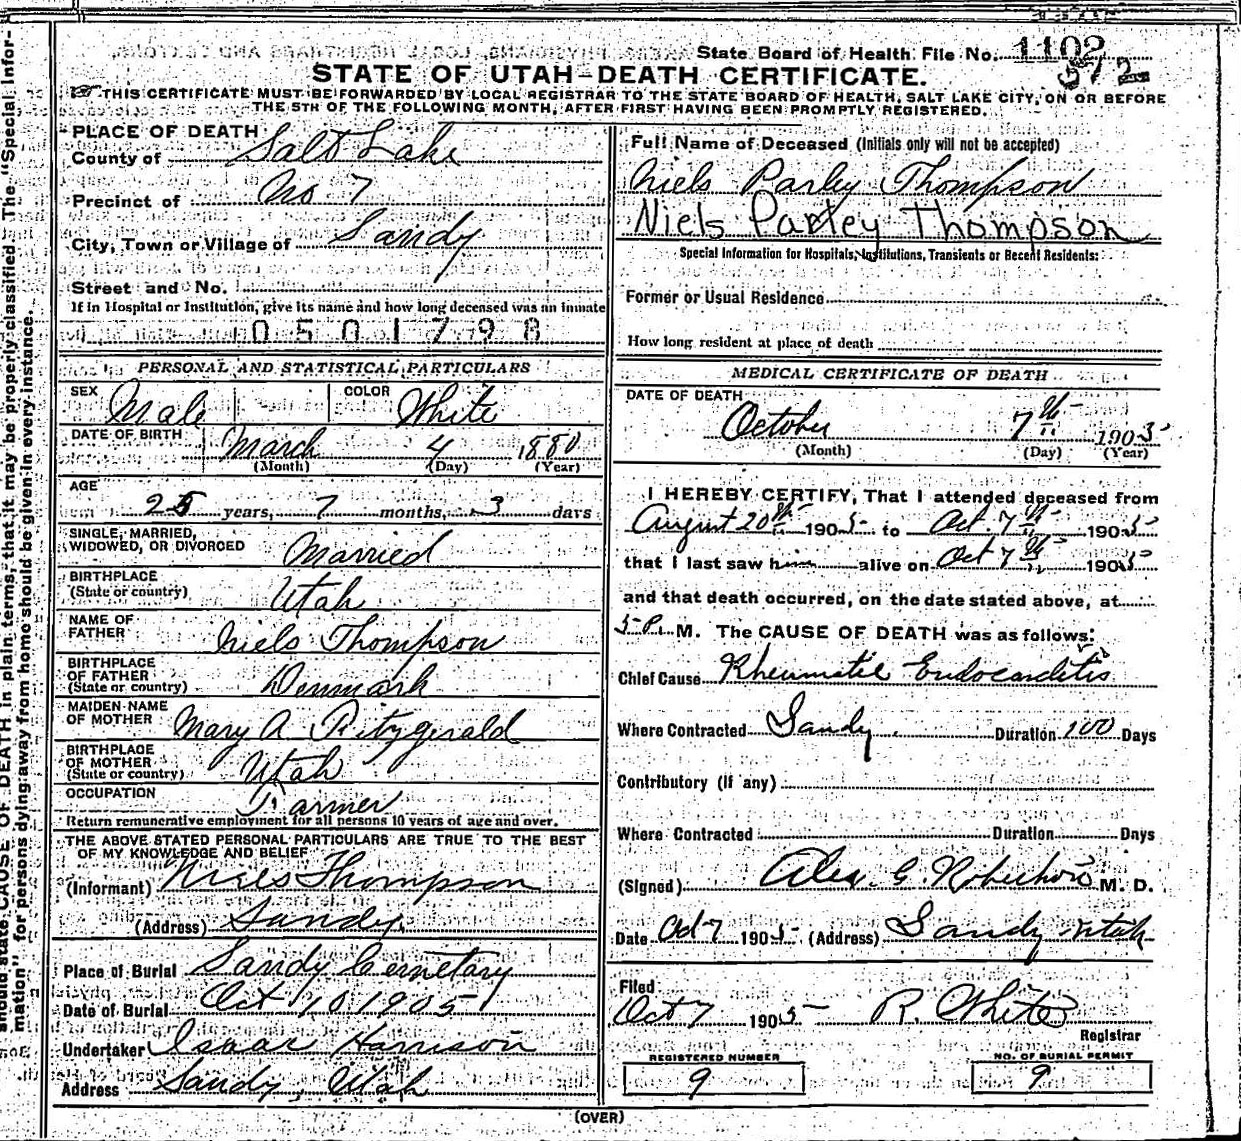 State Board of Health File No. 1102
372
STATE OF UTAH—DEATH CERTIFICATE.
THIS CERTIFICATE MUST BE FORWARDED BY LOCAL REGISTRAR TO THE STATE BOARD OF HEALTH, SALT LAKE CITY, ON OR BEFORE
THE 5TH OF THE FOLLOWING MONTH, AFTER FIRST HAVING BEEN PROMPTLY REGISTERED.
PLACE OF DEATH
County of Salt Lake
Precinct of No 7
City, Town or Village of Sandy
Street and No.
If in Hospital or Institution, give its name and how long deceased was an inmate
0501798
PERSONAL AND STATISTICAL PARTICULARS
SEX Male COLOR White
DATE OF BIRTH March 4 1880
(Month) (Day) (Year)
AGE
25 years, 7 months, 3 days
SINGLE, MARRIED,
WIDOWED, OR DIVORCED Married
BIRTHPLACE
(State or country) Utah
NAME OF
FATHER Niels Thompson
BIRTHPLACE
OF FATHER
(State or country) Denmark
MAIDEN NAME
OF MOTHER Mary A Fitzgerald
BIRTHPLACE
OF MOTHER
(State or country) Utah
OCCUPATION Farmer
Return remunerative employment for all persons 10 years of age and over.
THE ABOVE STATED PERSONAL PARTICULARS ARE TRUE TO THE BEST
OF MY KNOWLEDGE AND BELIEF
(Informant) Niels Thompson
(Address) Sandy.
Place of Burial Sandy Cemetary
Date of Burial Oct 10 1905
Undertaker Isaac Harrison
Address Sandy, Utah
Full Name of Deceased (Initials only will not be accepted)
Niels Parley Thompson
Niels Parley Thompson
Special Information for Hospitals, Institutions, Transients or Recent Residents:
Former or Usual Residence
How long resident at place of death
MEDICAL CERTIFICATE OF DEATH
DATE OF DEATH
October 7th 1905
(Month) (Day) (Year)
I HEREBY CERTIFY, That I attended deceased from
August 20th 1905 to Oct. 7th 1905
that I last saw him alive on Oct 7th 1905
and that death occurred, on the date stated above, at
5 P. M. The CAUSE OF DEATH was as follows:
Chief Cause Rheumatic Endocarditis
Where Contracted Sandy. Duration 100 Days
Contributory (if any)
Where Contracted Duration Days
(Signed) Alex. G. M. D.
Date Oct 7 1905 (Address) Sandy Utah
Filed
Oct 7 1905 R. White
Registrar
REGISTERED NUMBER
9
NO. OF BURIAL PERMIT
9
(OVER)
should state CAUSE OF DEATH in plain terms, that it may be properly classified. The "Special Infor-
mation" for persons dying away from home should be given in every instance.